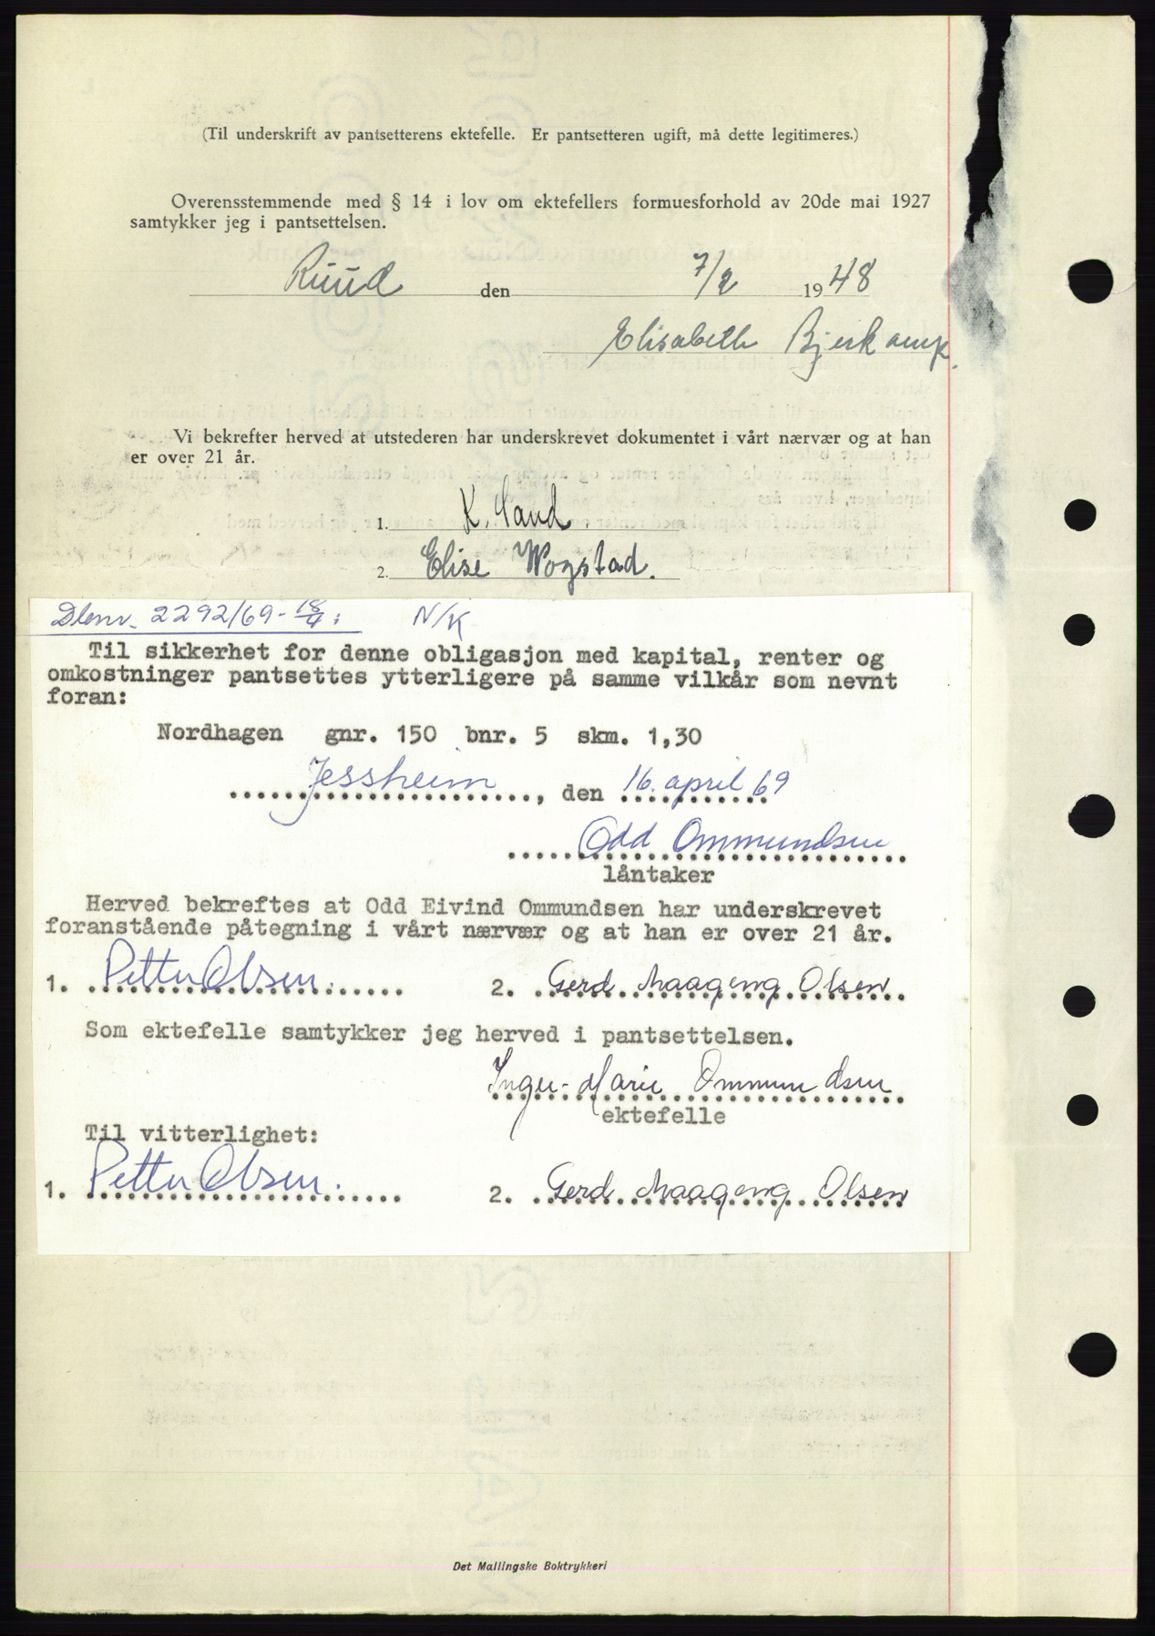 (Til underskrift av pantsetterens ektefelle. Er pantsetteren ugift, må dette legitimeres.)
Overensstemmende med § 14 i lov om ektefellers formuesforhold av 20de mai 1927
samtykker jeg i pantsettelsen.
Ruud den 7/2 1948
Elisabeth Bjerkamp.
Vi bekrefter herved at utstederen har underskrevet dokumentet i vårt nærvær og at han
er over 21 år.
1. K. Sand.
2. Elise Wogstad.
2292/69 - 18/4 N/K
Til sikkerhet for denne obligasjon med kapital, renter og
omkostninger pantsettes ytterligere på samme vilkår som nevnt
foran:
Nordhagen gnr. 150 bnr. 5 skm. 1,30
Jessheim, den 16. april 69
Odd Ommundsen
låntaker
Herved bekreftes at Odd Eivind Ommundsen har underskrevet
foranstående påtegning i vårt nærvær og at han er over 21 år.
1. Petter Olsen. 2. Gerd Maageng Olsen
Som ektefelle samtykker jeg herved i pantsettelsen.
Inger-Marie Ommundsen
ektefelle
Til vitterlighet:
1. Petter Olsen. 2. Gerd Maageng Olsen
Det Mallingske Boktrykkeri